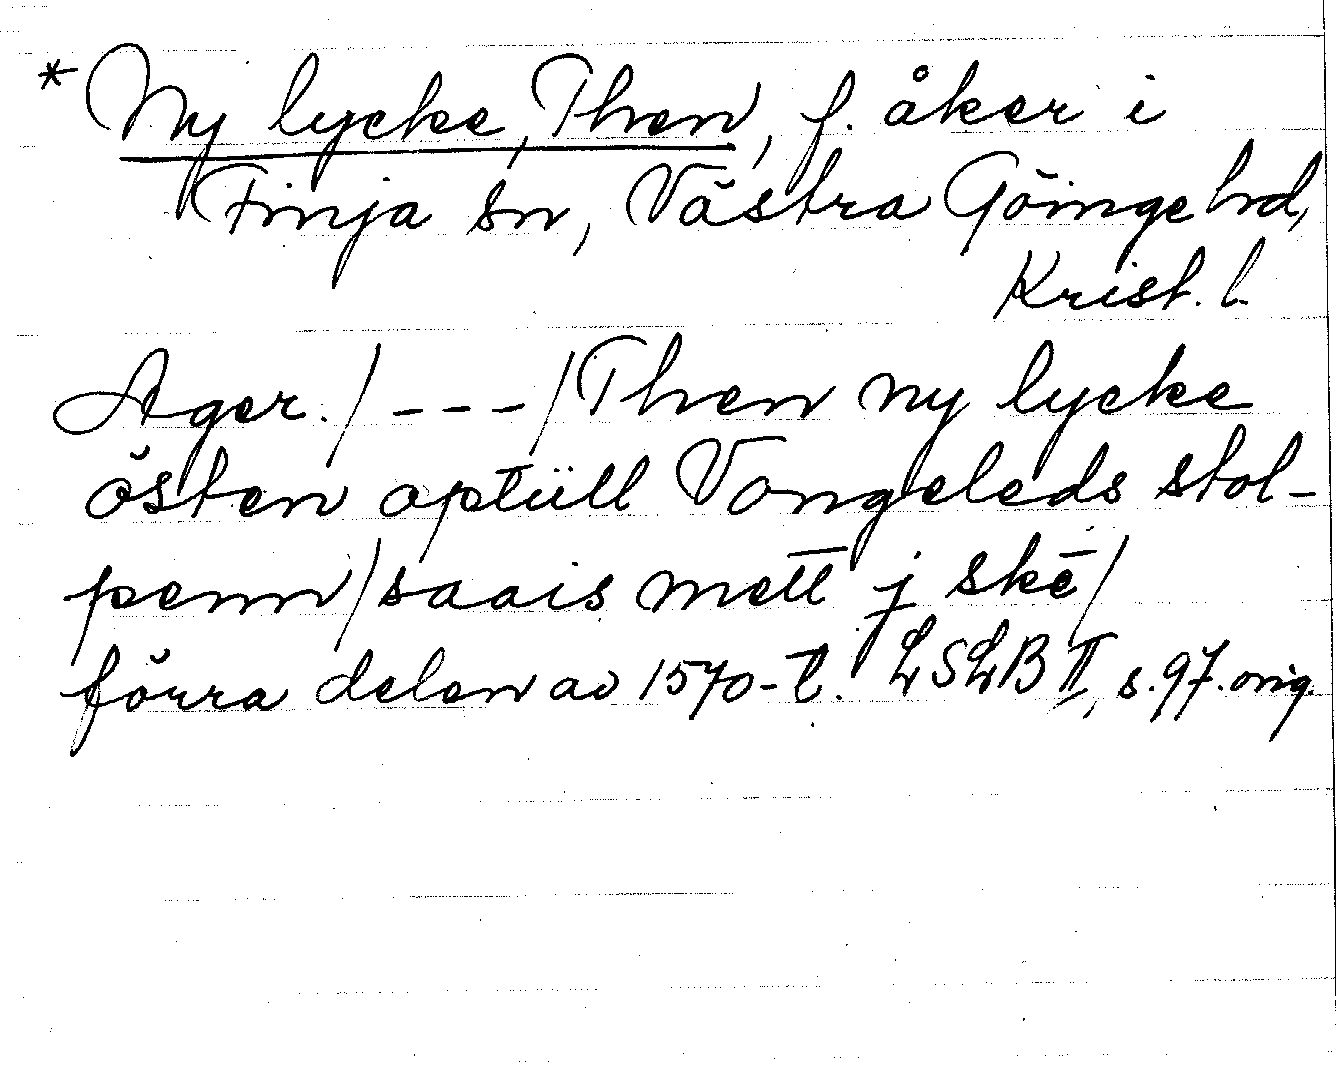 * Ny lycke, Then, f. åker i
Finja sn, Västra Göinge hd,
Krist. l.
Ager. / - - - / Then ny lycke
östen optüll Vongeleds stol-
penn / saais mett j skē /
förra delen av 1570-t. LSLB II, s. 97. orig.